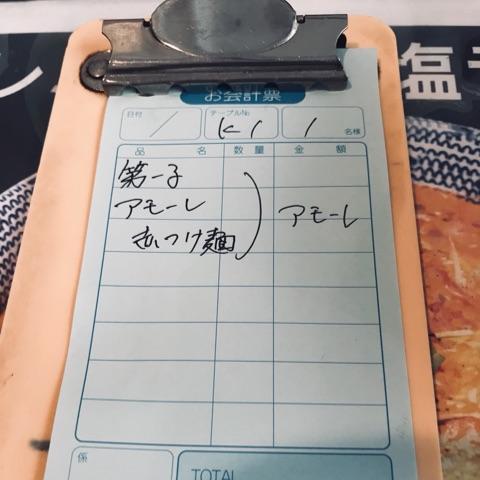 塩
お会計票
日付 / テーブルNo. K1 1 名様
品 名 数 量 金 額
第一子
アモーレ アモーレ
つけ麺
係 TOTAL